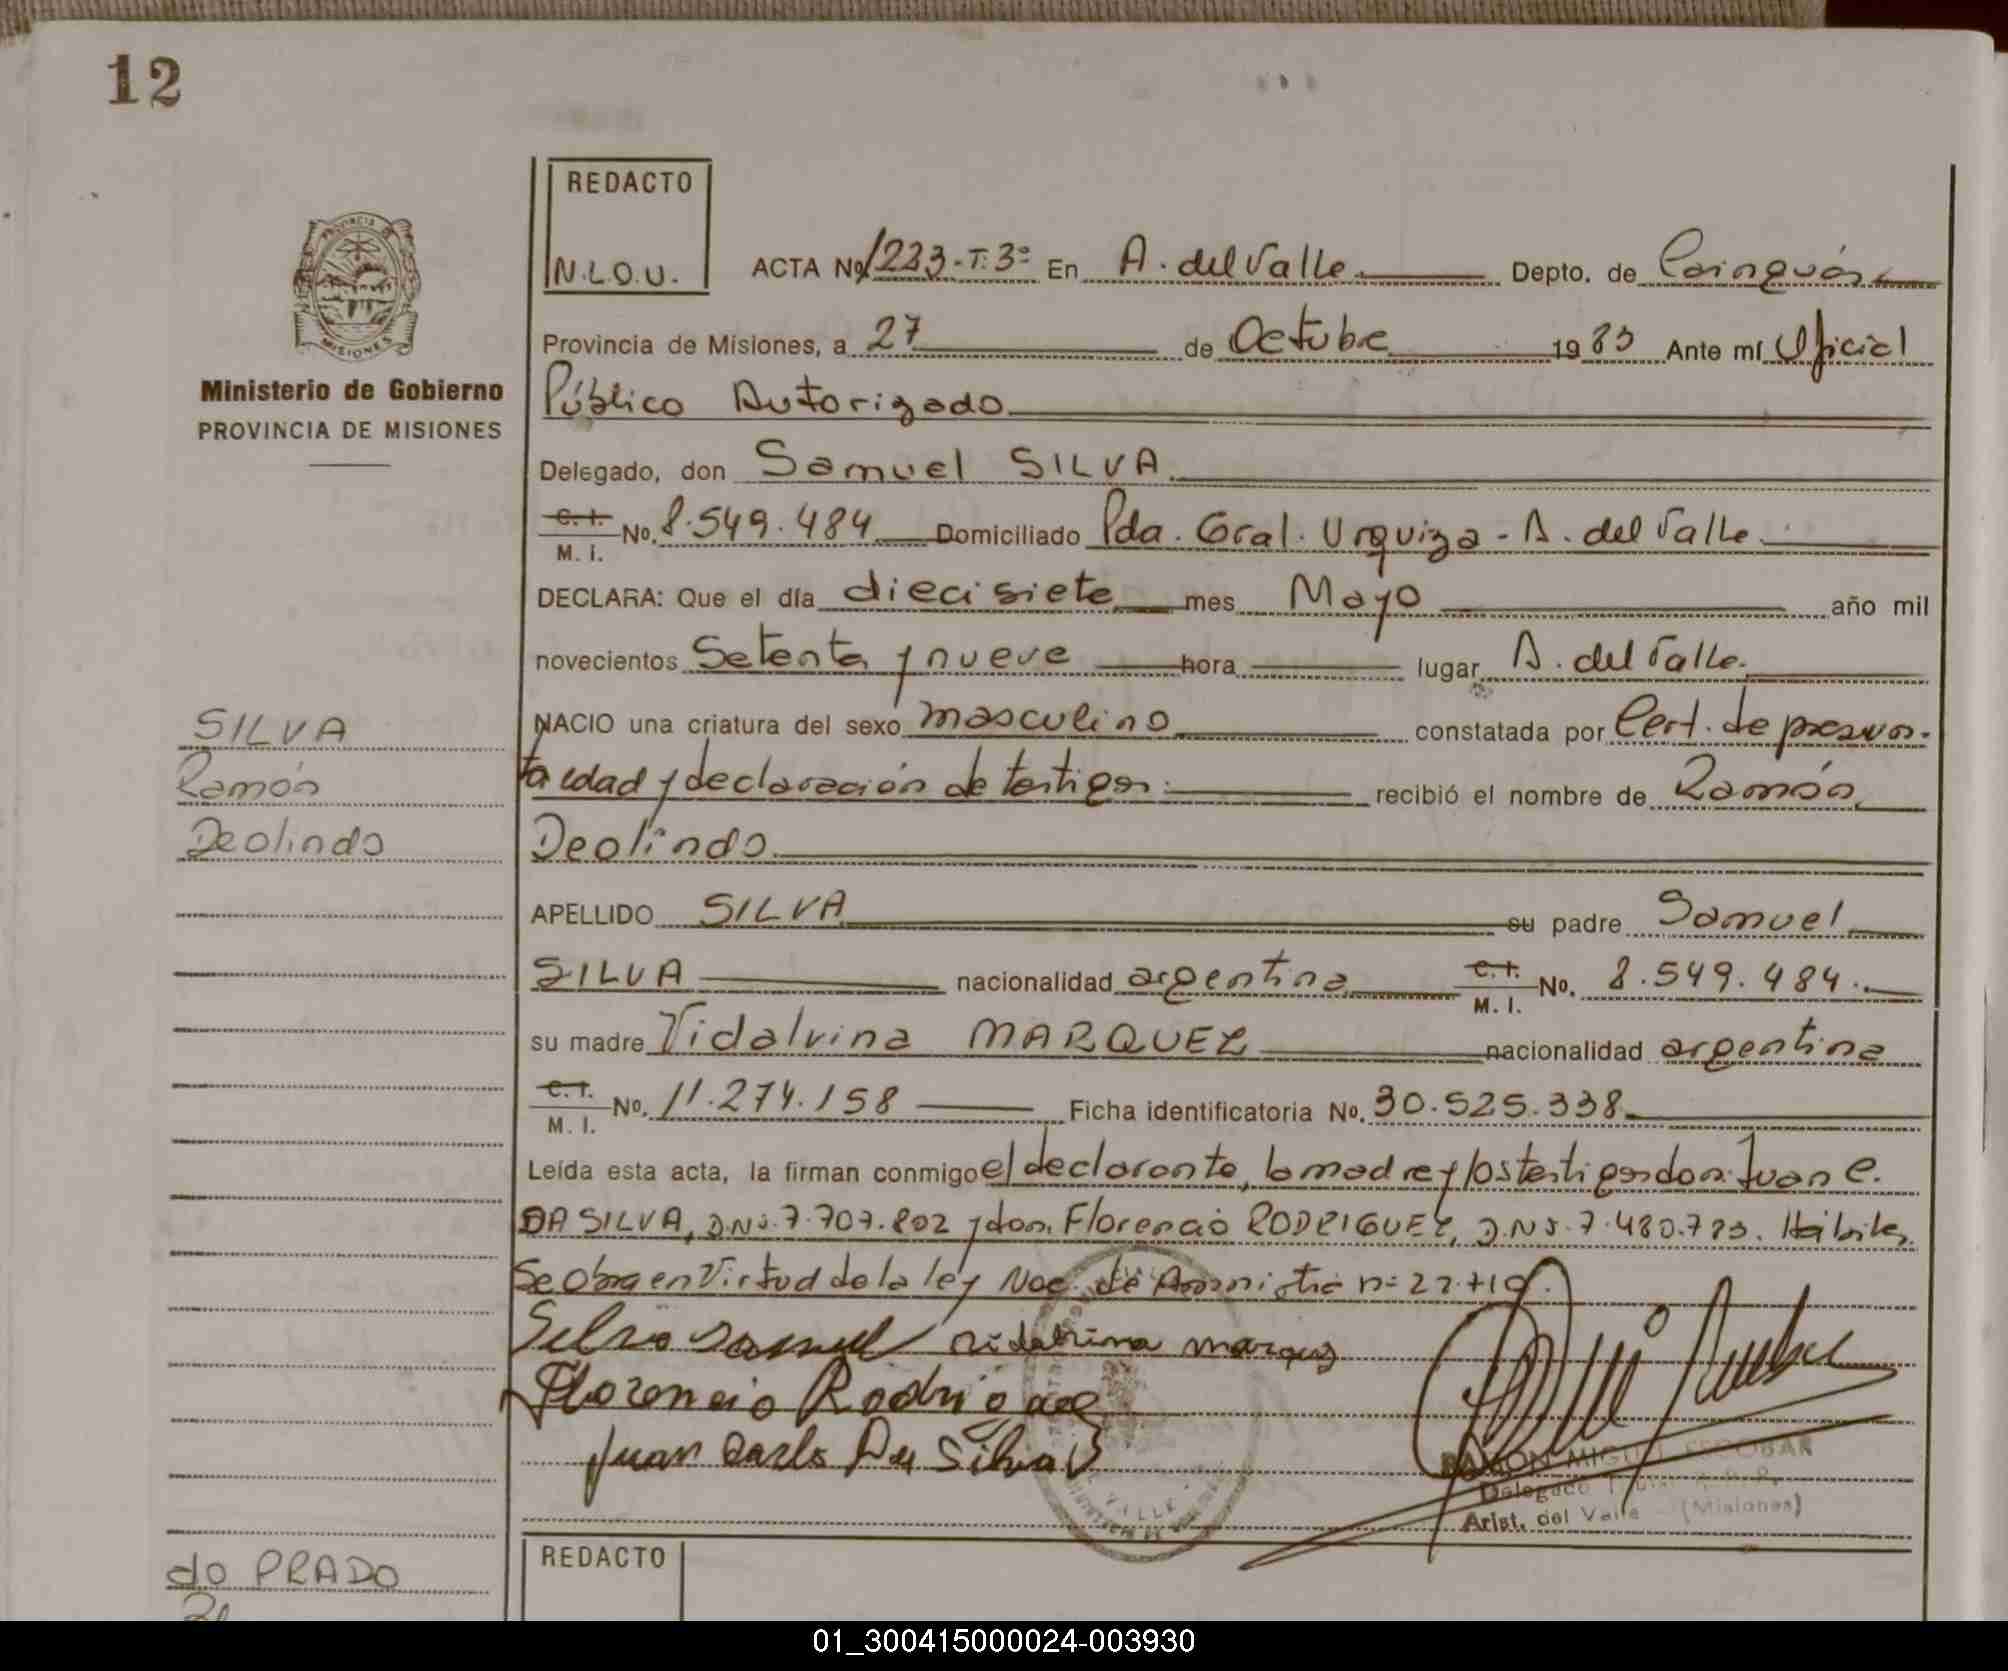 12
REDACTO
N.L.O.U.
ACTA Nº 1233-T.3º En A. del Valle Depto. de Cainguás
Provincia de Misiones, a 27 de Octubre 1983 Ante mí Oficial
Público Autorizado
Delegado, don Samuel SILVA
C. I. / M. I. No. 8.549.484 Domiciliado Pda. Gral. Urquiza - A. del Valle
DECLARA: Que el día diecisiete mes Mayo año mil
novecientos Setenta y nueve hora lugar A. del Valle.
NACIO una criatura del sexo masculino constatada por Cert. de presun-
ta edad y declaración de testigos. recibió el nombre de Ramón
Deolindo
APELLIDO SILVA su padre Samuel
SILVA nacionalidad argentina C. I. / M. I. No. 8.549.484.
su madre Vidalvina MARQUEZ nacionalidad argentina
C. I. / M. I. No. 11.274.158 Ficha identificatoria No. 30.525.338
Leída esta acta, la firman conmigo el declarante, la madre y los testigos don: Juan C.
DA SILVA, D.N.I. 7.707.802 y don. Florencio RODRIGUEZ, D.N.I. 7.480.783. Hábiles.
Se obra en Virtud de la ley Nac. de Amnistia nº 22.710.
Silva Samuel Vidalvina Marquez
Florencio Rodriguez
Juan Carlo Da Silva
RAMON MIGUEL ESCOBAR
Delegado
Arist. del Valle (Misiones)
PROVINCIA DE
MISIONES
Ministerio de Gobierno
PROVINCIA DE MISIONES
SILVA
Ramón
Deolindo
do PRADO
REDACTO
01_300415000024-003930